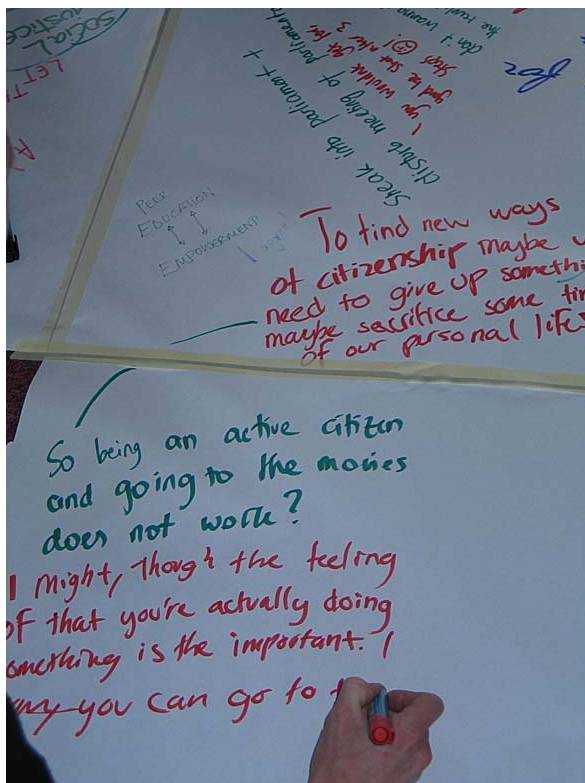 SOCIAL
JUSTICE
don't wanna
Sneak into parliament +
disturb meeting of parliament
I you wouldnt get far,
you'd be shot after 3
steps
For
PEER
EDUCATION
EMPOWERMENT
To find new ways
of citizenship maybe
need to give up
maybe sacrifice some
of our personal life
So being an active citizen
and going to the movies
does not work?
I Might, though the feeling
of that you're actually doing
omething is the important. I
you can go to